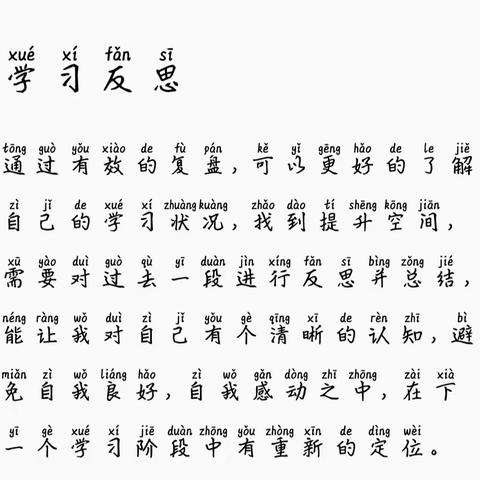 xué xí fǎn sī
学习反思
tōng guò yǒu xiào de fù pán kě yǐ gēng hǎo de le jiě
通过有效的复盘，可以更好的了解
zì jǐ de xué xí zhuàng kuàng zhǎo dào tí shēng kōng jiān
自己的学习状况，找到提升空间，
xū yào duì guò qù yī duàn jìn xíng fǎn sī bìng zǒng jié
需要对过去一段进行反思并总结，
néng ràng wǒ duì zì jǐ yǒu gè qīng xī de rèn zhī bì
能让我对自己有个清晰的认知，避
miǎn zì wǒ liáng hǎo zì wǒ gǎn dòng zhī zhōng zài xià
免自我良好，自我感动之中，在下
yī gè xué xí jiē duàn zhōng yǒu zhòng xīn de dìng wèi
一个学习阶段中有重新的定位。